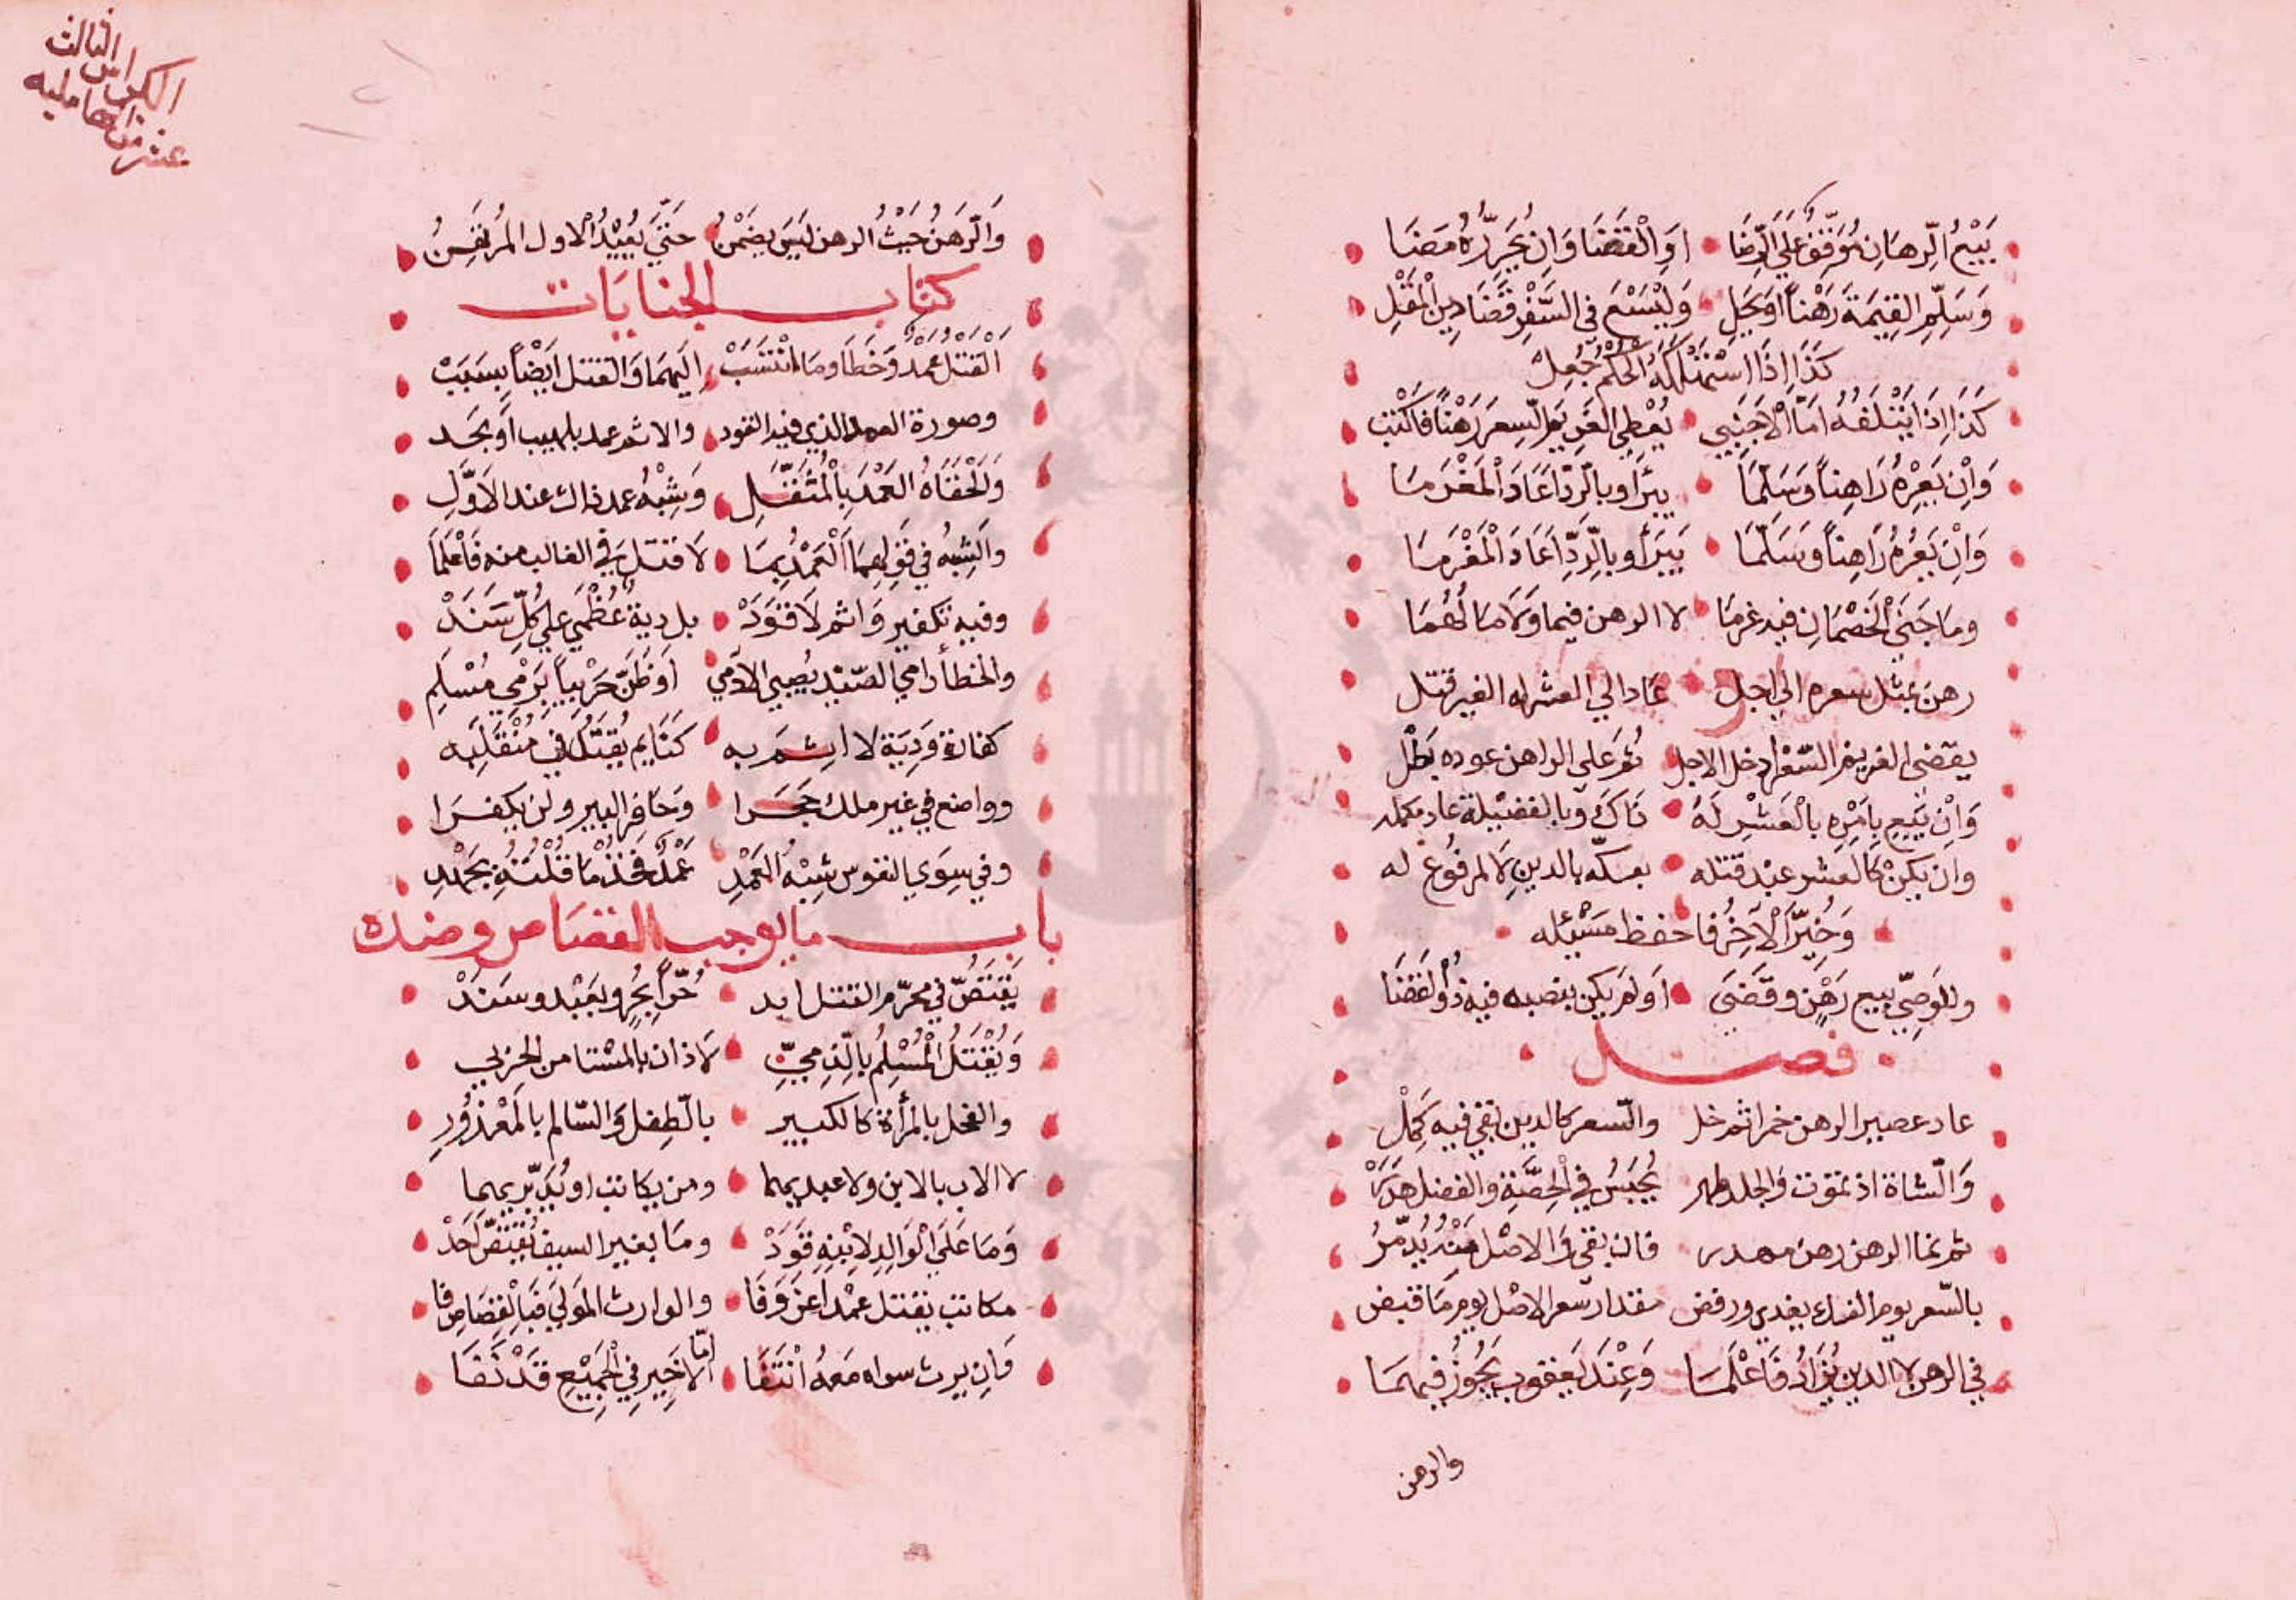 بَيْعُ الرِّهَانِ مُوَقَّفٌ عَلَى الرِّضَا اوِ الْقَضَا وَاِن يُجَرِّدْهُ مَضَا
وَسَلِّمِ القِيمَةَ رَهْناً اوَ يَجَلِ وَلْيَسْعَ فى السِّعْرِ قَضَا دين الْمُقْلِ
كَذَا اِذَا اسْتَهْلَكَهُ الْحُكْمُ جُعِلْ
كَذَا اِذَا يُتْلِفُهُ اَمَّا الْاجْنَبِي يُعْطِى الغَرِيمَ السِّعرَ رَهْناً فَاكْتُبِ
وَاِنْ يَعِرْهُ رَاهِناً وَسَلَّمَا يبرَا وبالرَّدِّ اَعَادَ الْمَغْرَمَا
وَاِنْ يَعِرْهُ رَاهِناً وَسَلَّمَا يَبرَأ وبالرَّدِّ اَعَادَ الْمَغْرَمَا
وما جَنَى الْخَصْمَانِ فيه غرمَا لا الرهن فيما وَلَا مَا لَهُمَا
رهن بمثل سعره الى اجل عَاد الي العشر له الغير قتل
يقضى الغريم السّعْر اذ حل الاجل ثُم عَلى الراهن عوده بَطْل
وَاِنْ يَبِيعِ بِاَمْرِهِ بالْعَشْرِ لَهُ ذَاكَ وبالفضيلة عاد مكمله
وان يكنْ كالعشر عبْد قتله بعكّه بالدينِ لَا لمرفُوع له
وَخُيِّرَ الْآخِرُ فاحفظ مَسْئَله
وللوَصِيّ بيع رَهْنٍ وقَضَى اَو لم يكن ينصبه فيهِ ذُو الْقَضَا
فصل
عاد عصير الرهن خمرا ثم خل والسّعر كالدين بقي فيه كَمِلْ
وَالشاة اذ تموت وَالجلد طهر يُحْبَسُ فِي الْحِصَّةِ والفضل هدَر
ثم نما الرهن رهن مهدر فان بقى وَالاصْل مِنْهُ يُدَمَّرُ
بالسّعر يوم الفداء يفدي ورفض مقدار سعر الاصْل يوم مَا قبض
في الرهن لا الدين يُزَادُ فَاعْلَمَا وَعِنْدَ يَعقوب يَجُوزُ فيهمَا
والرهن
الكراس الثالث
عشر من الهامليه
وَالرَّهَنُ حَيْثُ الرهن لَيَسَ يضمَنُ حَتّىَ يُعِيْدُ الْاول المُرتَهِنُ
كتاب الجنايات
الْقَتْلُ عَمْدٌ وَخَطَأ وما انْتَسَبْ اِلَيهمَا وَالقتل اَيْضاً بِسَبَبْ
وصورة العمد الذي فيه القود والاثم عمد بلهيب اَو بحَد
وَاَلْحَقَاهُ العَمْدَ بِالْمُثَقَّلِ وَشِبْهُ عمد ذاك عند الاَوَّلِ
والشِبْهُ في قَوْلِهِمَا اَلْعَمْدُ بِمَا لَا قتلَ في الغالب منه فَاعْلَمَا
وفيه تكفير وَاثم لَا قَوَدْ بل ديةٌ عُظْمَي علي كُلِّ سَنَدْ
والخطأ رامي الصّيْد يُصيب الادَمي اَو ظَنّ حَرْبِياً يَرْمِي مُسْلِمِ
كفارة وَدِيَة لا اثم به كنايم يُقتَلُ في مُنْقَلَبِه
وواضع في غير ملك حَجَرا وَحَافر البير ولن يكفرا
وفي سِوَي النفوس شِبْهُ الْعَمْدِ عَمْدٌ فَخُذْ مَا قُلْتُهُ بِجَهْدِ
باب ما يوجب القصَاص وضده
يَقْتَصُّ في محرّم القتل ابد حُرّاً بِحُرٍ وبعَبْد وسَنَدْ
وَيُقْتَلُ الْمُسْلِمُ بالذِّمِيِّ لَا ذان بالمسْتامن الحِرْبي
والفحل بالمرأة كالكبير بالطِفل وَالسّالم بالَمعْذُورِ
لا الاب بالابن ولا عبديهما ومن يكاتب او يُدَبّر يهما
وَمَا عَلَى الْوَالِدِ لِابْنِهِ قَوَدْ ومَا بغير السيف يُقتَصُّ لَحَدْ
مكاتب يقتل عمْداً عَنْ وَفَا والوارث المَولَي فَبِالْقِصَاصِ فا
وَاِن يرث سواه مَعهُ انْتَفَا اِمَّا الَاخِير فِي الْجَمِيْعِ قَدْ نَفَا